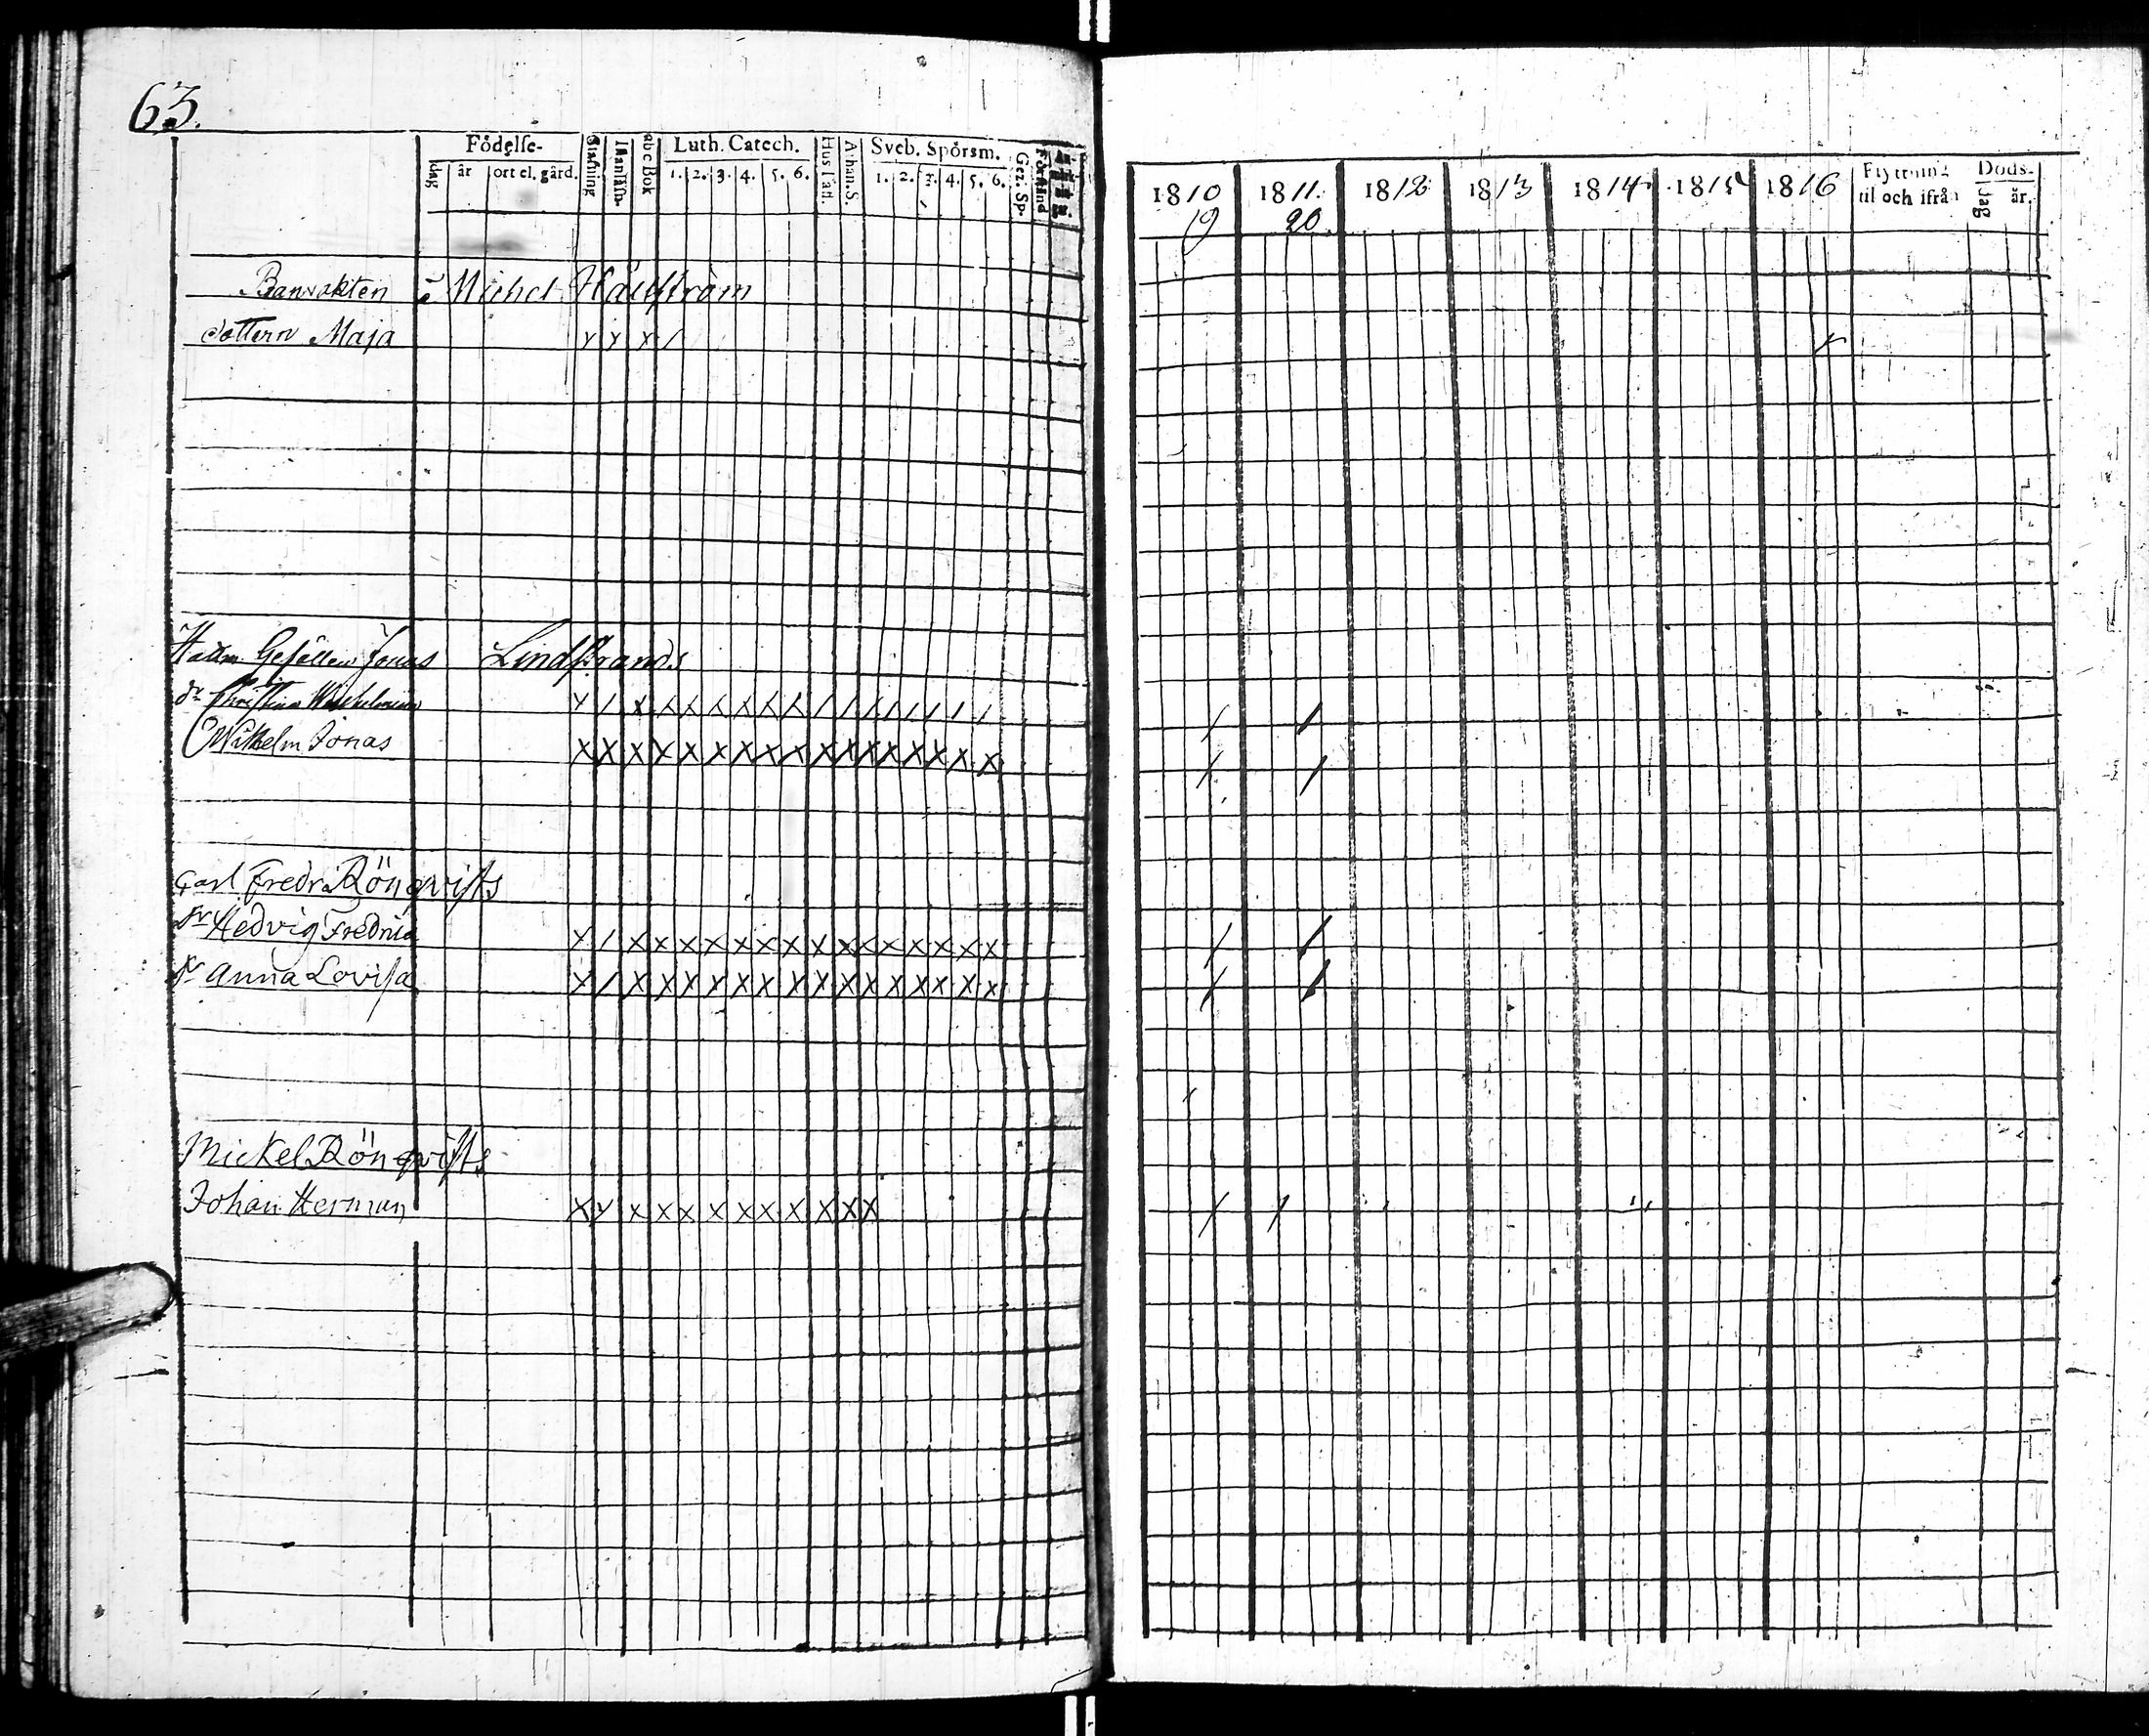 63.
Födelse-
dag år ort el. gård.
Stafning Inanläsn. abc Bok
Luth. Catech.
1. 2. 3. 4. 5. 6.
Hust afl. Athan. S.
Sveb. Spörsm.
1. 2. 3. 4. 5. 6.
Gez. Sp. Förstånd
1810 1811. 1812 1813 1814 1815 1816
19 20
Flyttning
til och ifrån
Döds-
dag år.
Banvakten Michel Hällström
dottern Maja
Gesällen Jonas Lindstrands
dr Christina
Wilhelm Jonas
Carl Fredr. Rönqvists
Hedvig Fredrica
Anna Lovisa
Mickel Rönqvists
Johan Herman